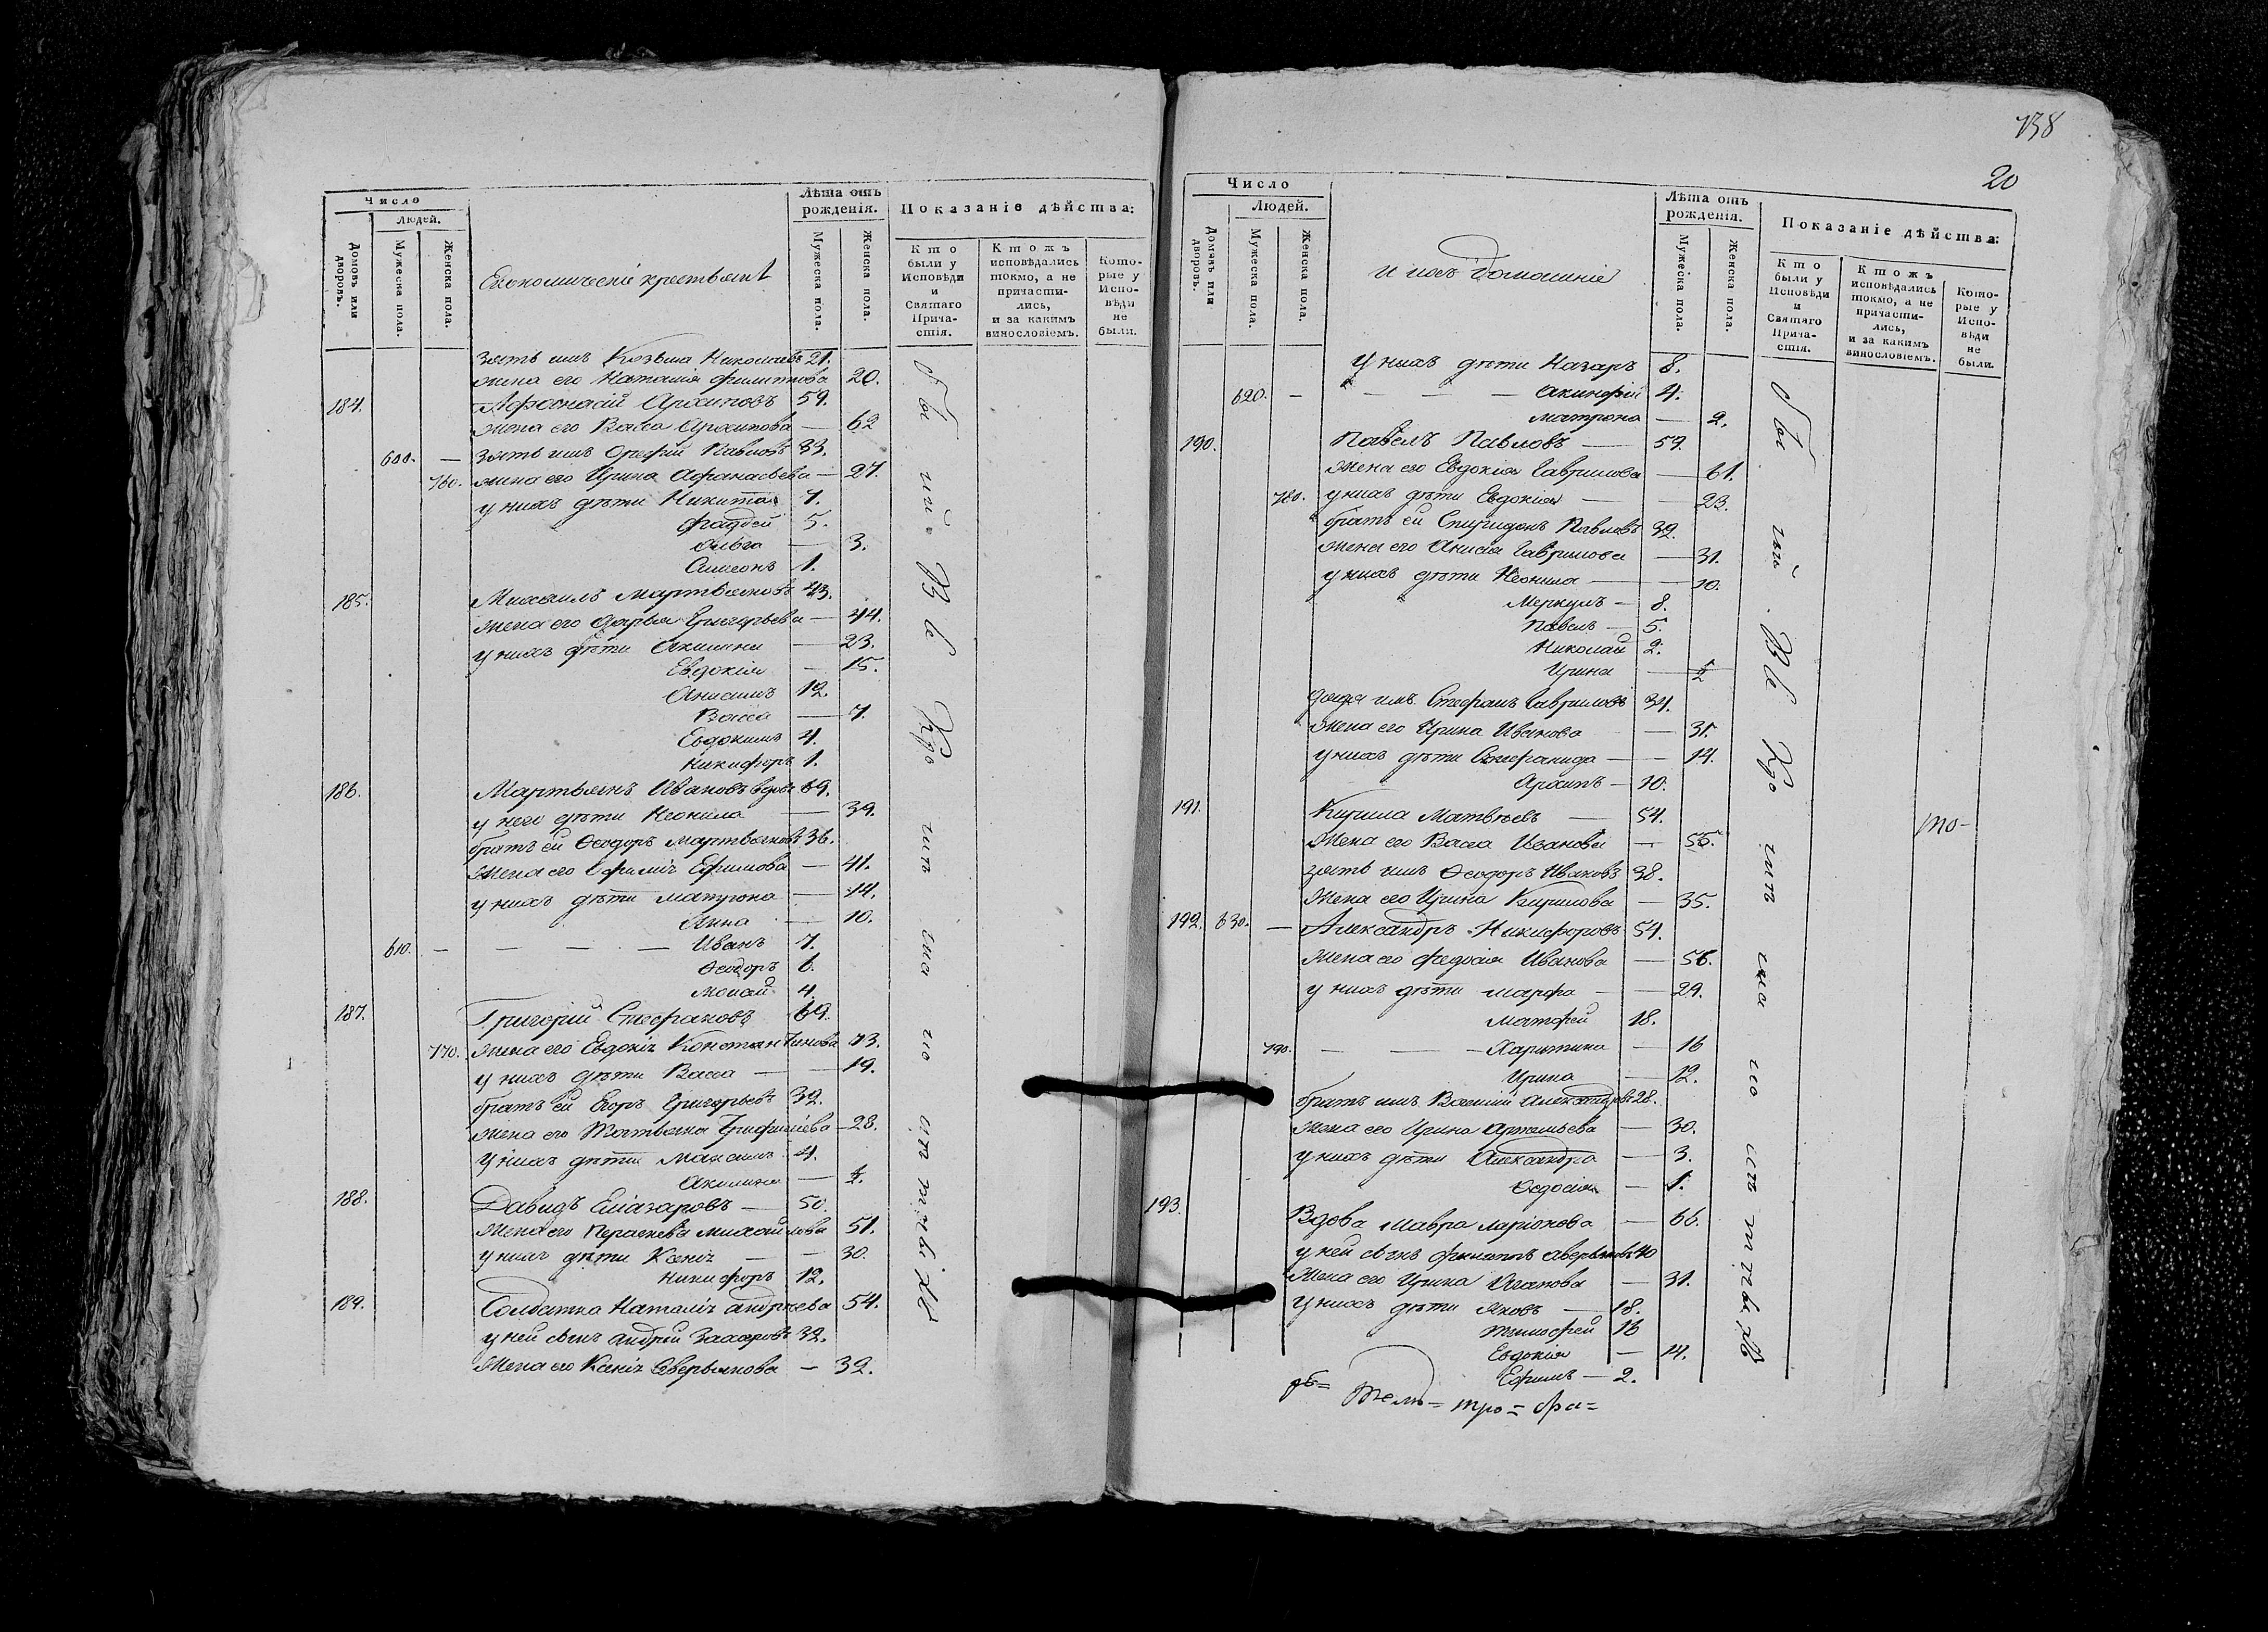 138
20
Число
Людей.
Домовъ или дворовъ.
Мужеска пола.
Женска пола.
Економическіе крестьяне
Лѣта отъ рожденія.
Мужеска пола.
Женска пола.
Показаніе дѣйства:
Кто были у Исповѣди и Святаго Причастія.
Ктожъ исповѣдались токмо, а не причастились, и за какимъ винословіемъ.
Которые у Исповѣди не были.
зять ихъ Козьма Николаевъ 21.
жена его Наталія Филиппова 20.
184. Афонасій Архиповъ 59.
жена его Васса Архипова — 62
600. — зять ихъ Павловъ 33.
760. жена его Ирина Афанасьева — 27.
у нихъ дѣти Никита 7.
Фаддей 5.
Ольга — 3.
Симеонъ 1.
185. Михаилъ Мартьяновъ 43.
жена его Дарья Григорьева — 44.
у нихъ дѣти Акилина — 23.
Евдокія — 15.
Анисимъ 12.
Васса — 7.
Евдокимъ 4.
Никифоръ 1.
186. Мартьянъ Ивановъ вдовъ 69.
у него дѣти Неонила — 39.
братъ ей Ѳеодоръ Мартьяновъ 36.
жена его Ефимова — 41.
у нихъ дѣти Матрона — 14.
Анна — 10.
610. — — — — Иванъ 7.
Ѳеодоръ 6.
Моисей 4.
187. Григорій Стефановъ 69.
770. жена его Евдокія Константинова 73.
у нихъ дѣти Васса — — 19.
братъ ей Егоръ Григорьевъ 32.
жена его Татьяна — 28.
у нихъ дѣти Максимъ 4.
Акилина —
188. Давидъ Елiазаровъ — 50.
жена его Параскева Михайлова 51.
у нихъ дѣти Ксенія — — 30.
Никифоръ 12.
189. Солдатка Наталія Андреева 54.
у ней сынъ Андрей Захаровъ 32.
жена его Ксенія Аверьянова — 32.
Число
Людей.
Домовъ или дворовъ.
Мужеска пола.
Женска пола.
и ихъ домашніе
Лѣта отъ рожденія.
Мужеска пола.
Женска пола.
Показаніе дѣйства:
Кто были у Исповѣди и Святаго Причастія.
Ктожъ исповѣдались токмо, а не причастились, и за какимъ винословіемъ.
Которые у Исповѣди не были.
у нихъ дѣти Назаръ 8.
620. — — — — Акинфій 4.
Матрона — 2.
190. Павелъ Павловъ — 59.
жена его Евдокія Гаврилова — 61.
780. у нихъ дѣти Евдокія — — 23.
братъ ей Спиридонъ Павловъ 32.
жена его Анисія Гаврилова — 31.
у нихъ дѣти Неонила — — 10.
Меркулъ — 8.
Павелъ — 5.
Николай 2.
Ирина —
дядя имъ Стефанъ Гавриловъ 34.
жена его Ирина Иванова — 31.
у нихъ дѣти Стефанида — — 14.
Архипъ — 10.
191. Кирила Матвѣевъ — 54.
жена его Васса Иванова — 55.
зять ихъ Ѳеодоръ Ивановъ 38.
жена его Ирина Кирилова — 35.
192. 630. — Александръ Никифоровъ 54.
жена его Федосія Иванова — 56.
у нихъ дѣти Марфа — — 29.
Матфей 18.
790. — — — Харитина — 16
Ирина — 12.
братъ ихъ Василій Александровъ 28.
жена его Ирина Артемьева — 30.
у нихъ дѣти Александра — 3.
Ѳедосія — 1.
193. Вдова Мавра Ларіонова — 66.
у ней сынъ Филиппъ Аверьяновъ 40
жена его Ирина Агапова — 31.
у нихъ дѣти Яковъ — 18.
Тимофей 16
Евдокія — 14.
Ефимъ — 2.